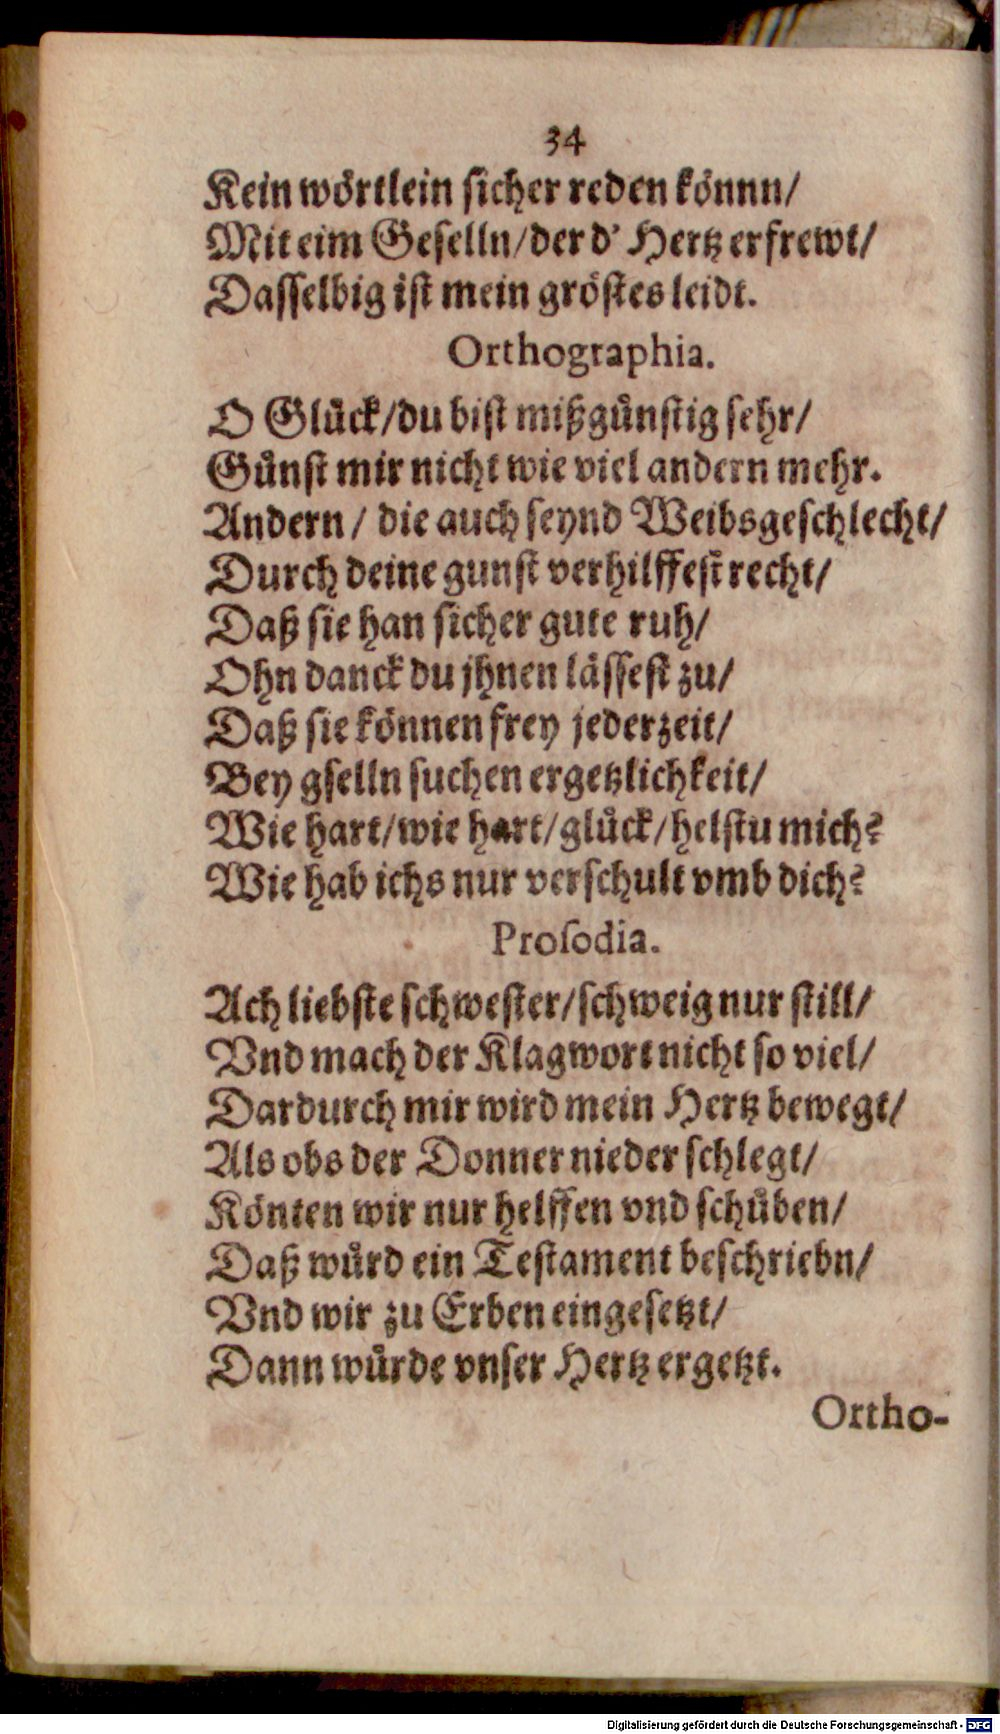 34
Kein wörtlein sicher reden könnn/
Mit eim Geselln/der d' Hertz erfrewt/
Dasselbig ist mein gröstes leidt.
Orthographia.
O Glück/du bist mißgünstig sehr/
Günst mir nicht wie viel andern mehr.
Andern/ die auch seynd Weibsgeschlecht/
Durch deine gunst verhilffest recht/
Daß sie han sicher gute ruh/
Ohn danck du jhnen lässest zu/
Daß sie können frey jederzeit/
Bey gselln suchen ergetzlichkeit/
Wie hart/wie hart/glück/helstu mich?
Wie hab ichs nur verschult vmb dich?
Proſodia.
Ach liebste schwester/schweig nur still/
Vnd mach der Klagwort nicht so viel/
Dardurch mir wird mein Hertz bewegt/
Als obs der Donner nieder schlegt/
Könten wir nur helffen vnd schüben/
Daß würd ein Testament beschriebn/
Vnd wir zu Erben eingesetzt/
Dann würde vnser Hertz ergetzt.
Ortho-
Digitalisierung gefördert durch die Deutsche Forschungsgemeinschaft - DFG